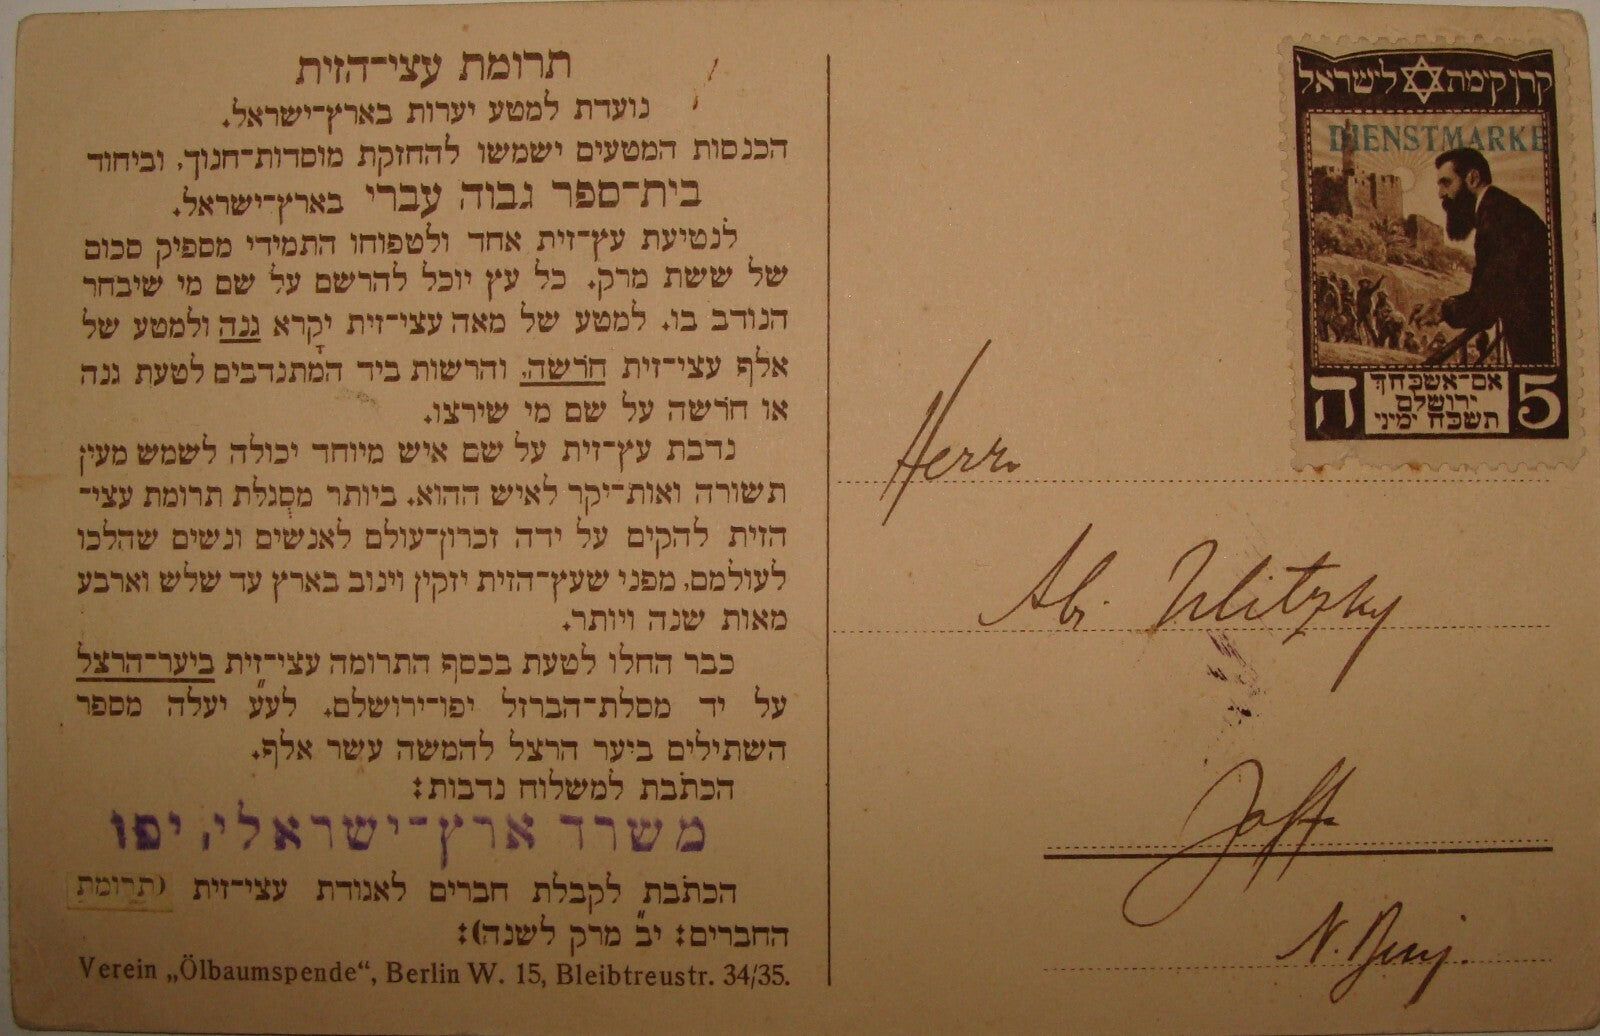 תרומת עצי־הזית
נועדת למטע יערות בארץ־ישראל.
הכנסות המטעים ישמשו להחזקת מוסדות־חנוך, וביחוד
בית־ספר גבוה עברי בארץ־ישראל.
לנטיעת עץ־זית אחד ולטפוחו התמידי מספיק סכום
של ששת מרק. כל עץ יוכל להרשם על שם מי שיבחר
הנודב בו. למטע של מאה עצי־זית יקָרא גנה ולמטע של
אלף עצי־זית חֹרשה, והרשות ביד המתנדבים לטעת גנה
או חֹרשה על שם מי שירצו.
נדבת עץ־זית על שם איש מיוחד יכולה לשמש מעין
תשורה ואות־יקר לאיש ההוא. ביותר מסְגלת תרומת עצי־
הזית להקים על ידה זכרון־עולם לאנשים ונשים שהלכו
לעולמם, מפני שעץ־הזית יזקין וינוב בארץ עד שלש וארבע
מאות שנה ויותר.
כבר החלו לטעת בכסף התרומה עצי־זית ביער־הרצל
על יד מסלת־הברזל יפו־ירושלם. לע״ע יעלה מספר
השתילים ביער הרצל להמשה עשר אלף.
הכתֹבת למשלוח נדבות:
משרד ארץ־ישראלי, יפו
הכתֹבת לקבלת חברים לאגודת עצי־זית (תרומת
החברים: י״ב מרק לשנה):
Verein „Ölbaumspende“, Berlin W. 15, Bleibtreustr. 34/35.
קרן קימת לישראל
DIENSTMARKE
ה אם־אשכחך ירושלם תשכח ימיני 5
Herrn
Abr. Ulitzky
Jaffa
N. Benj.